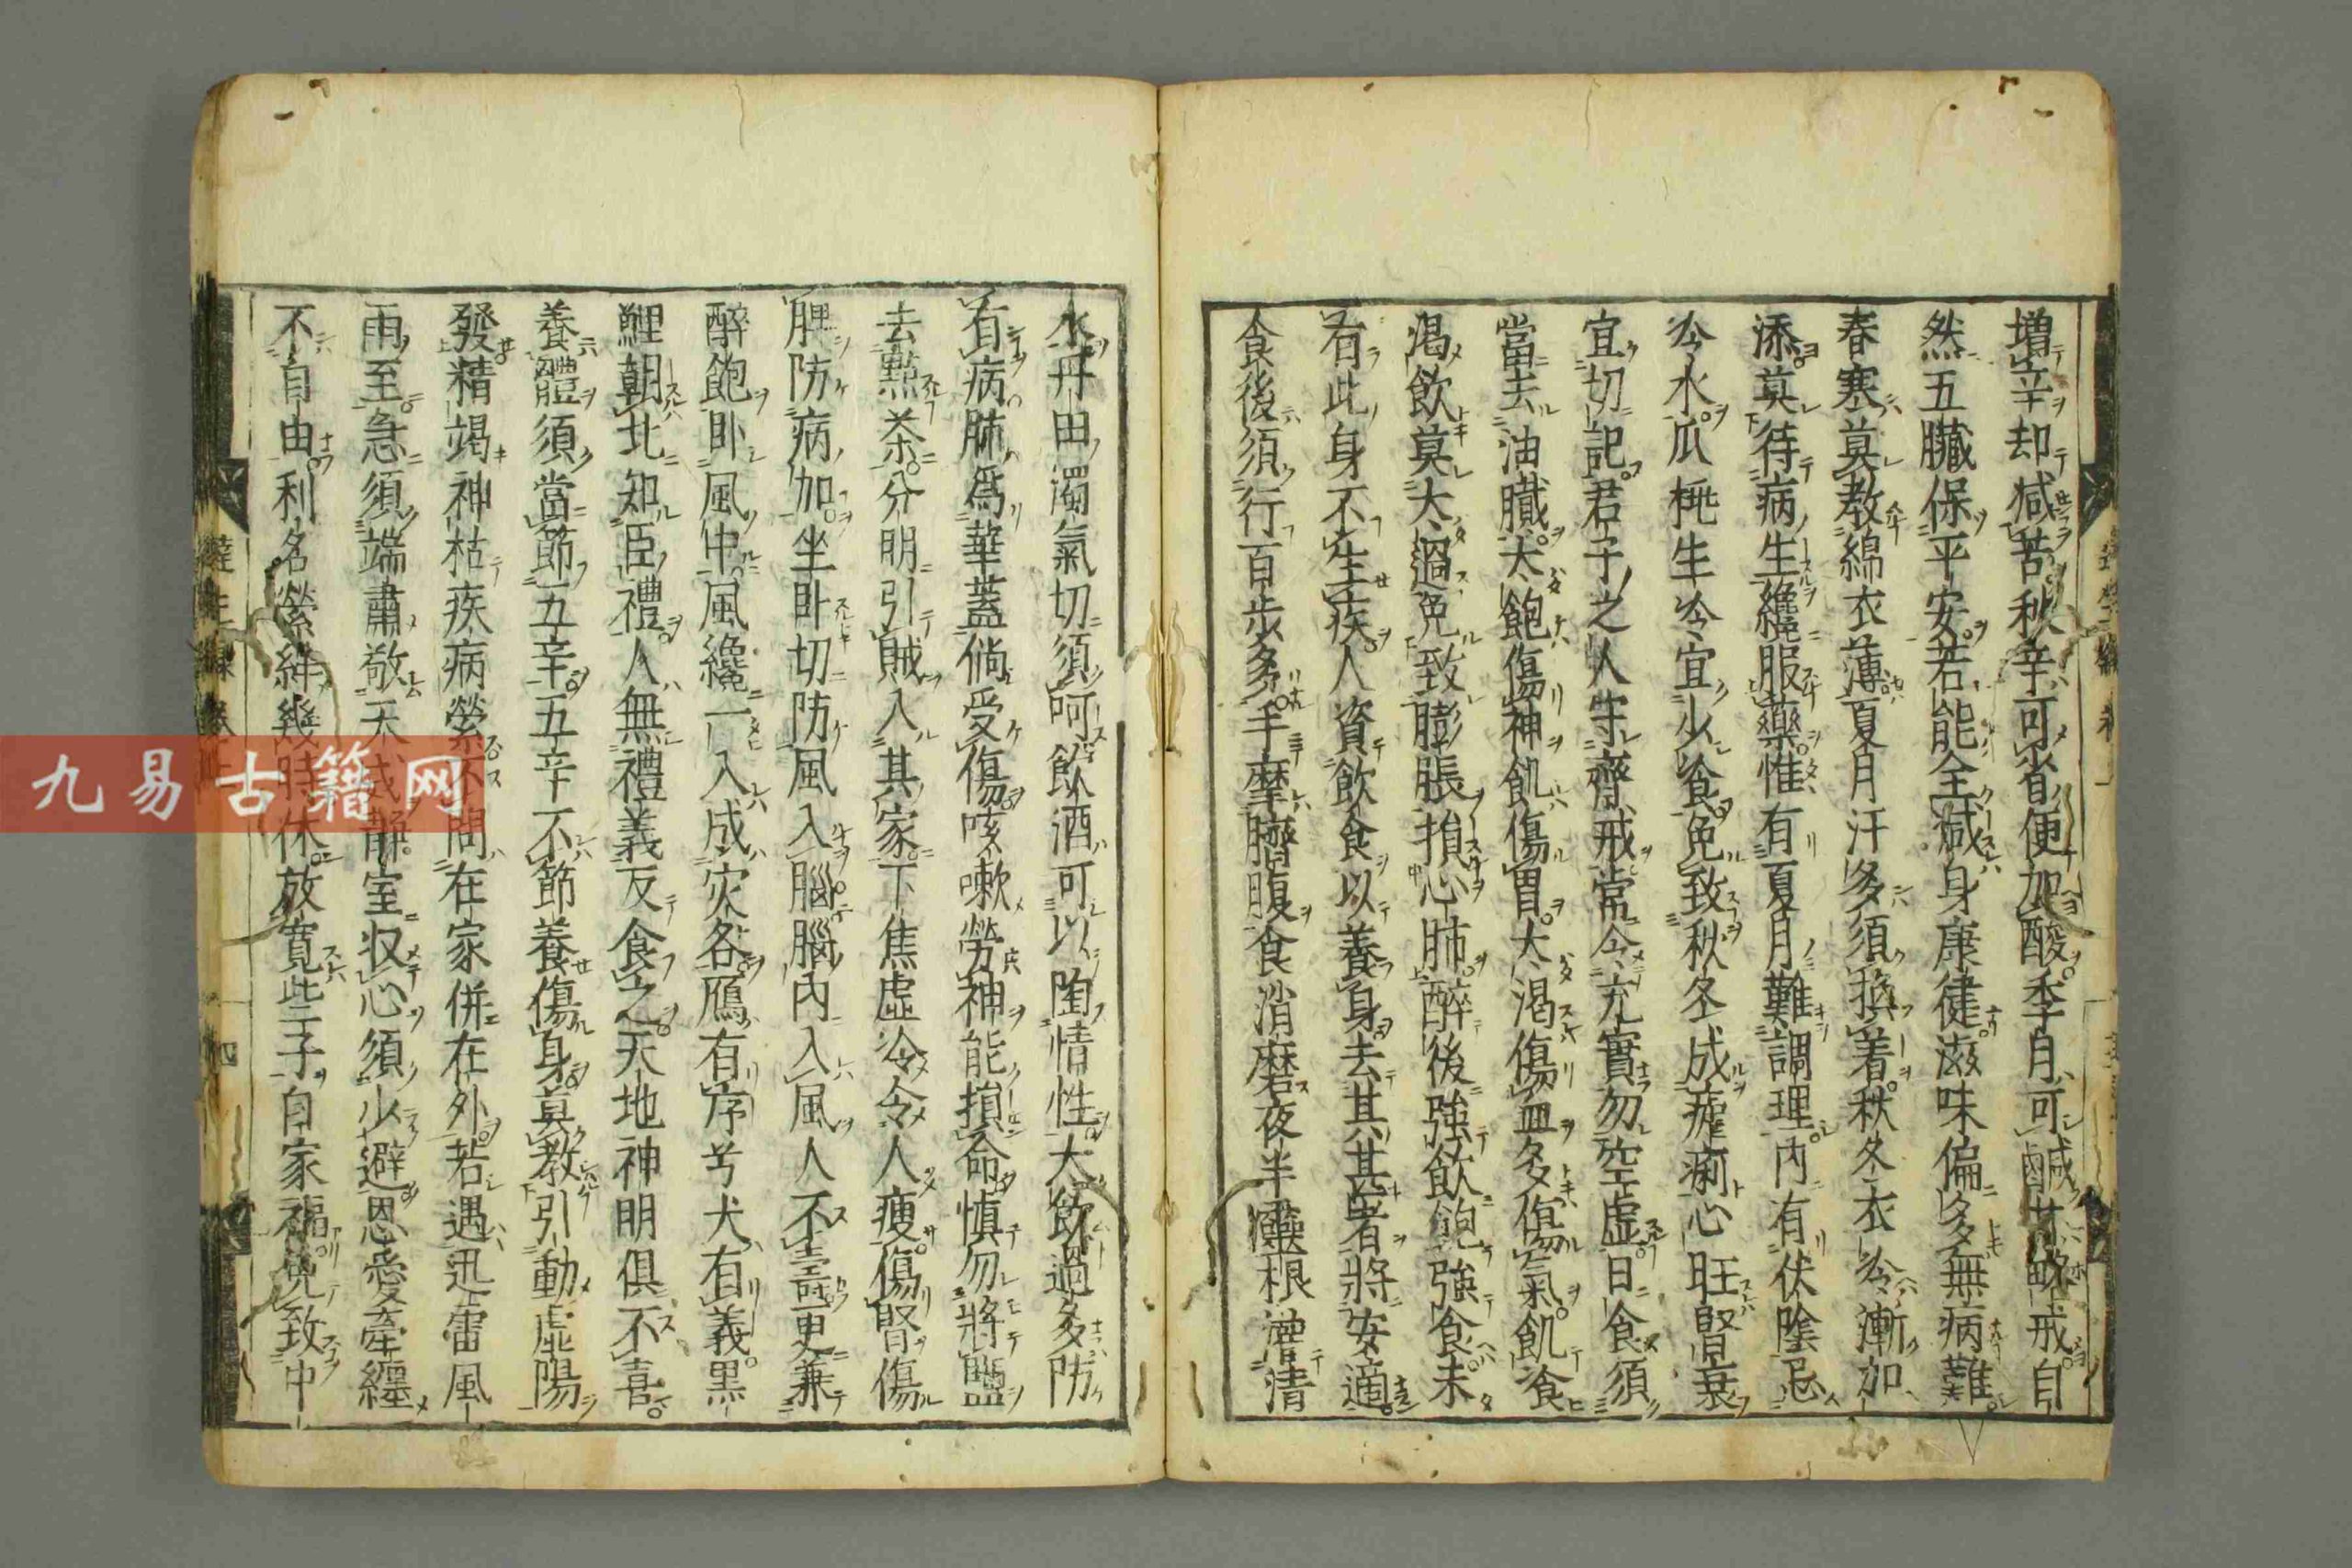 增辛却減苦秋辛可省便加酸季月可鹹甘略戒自
然五臟保平安若能全減身康健滋味偏多無病難
春寒莫教綿衣薄夏月汗多須換着秋冬衣冷漸加
添莫待病生纔服藥惟有夏月難調理内有伏隂忌
冷水瓜桃生冷宜少食免致秋冬成瘧痢心旺腎衰
宜切記君子之人守齋戒常令充實勿空虛日食須
當去油膩太飽傷神飢傷胃太渴傷血多傷氣飢飡
渴飲莫太過免致膨脹損心肺醉後強飲飽強食未
有此身不生疾人資飲食以養身去其甚者將安適
食後須行百步多手摩臍腹食消磨夜半靈根灌清
水丹田濁氣切須呵飲酒可以陶情性大飲過多防
有病肺爲華蓋倘受傷咳嗽勞神能損命慎勿將鹽
去點茶分明引賊入其家下焦虛冷令人瘦傷腎傷
脾防病加坐卧切防風入腦腦内入風人不壽更兼
醉飽卧風中風纔一入成灾咎鴈有序兮犬有義黒
鯉朝北知臣禮人無禮義反食之天地神明俱不喜
養體須當節五辛五辛不節養傷身莫教引動虛陽
發精竭神枯疾病縈不問在家併在外若遇迅雷風
雨至急須端肅敬天威靜室収心須少避恩愛牽纏
不自由利名縈絆幾時休放寬些子自家福免致中
九易古籍网